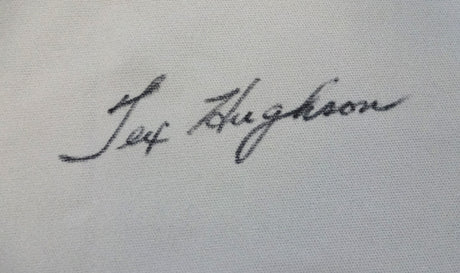 Tex Hughson